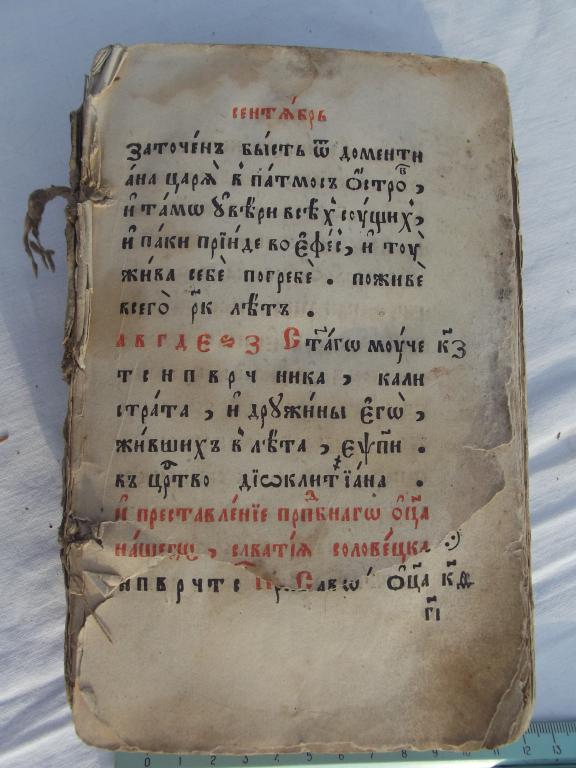 сентѧ́брь
заточе́нъ бы́сть ѿ доменти
а́на царѧ̀ в̾ па́тмосъ Ѻ҆стро́въ,
и҆ та́мѡ ꙋ҆вѣри всѣ́х̾ соу́щих̾,
и҆ па́ки прїи́де во є҆фе́съ, и҆ тоу̀
жи́ва себѐ погребѐ. поживѐ
всего̀ р҃к лѣтъ.
а в г д є ѕ з Ст҃агѡ моуче к҃з
т с и п в р ч ника, кали
стра́та, и҆ дрꙋжи́ны є҆гѡ̀,
жи́вшихъ в̾ лѣта, є҆ѱ҃п҃и.
въ цр҃тво дїѡклитїа́на.
и҆ преставле́нїе прпⷣбнагѡ Ѻ҆ц҃а
на́шегѡ, савва́тїѧ соловецка
и п в р ч т с Ѻ҆ц҃а к҃и
г҃і
0 1 2 3 4 5 6 7 8 9 10 11 12 13